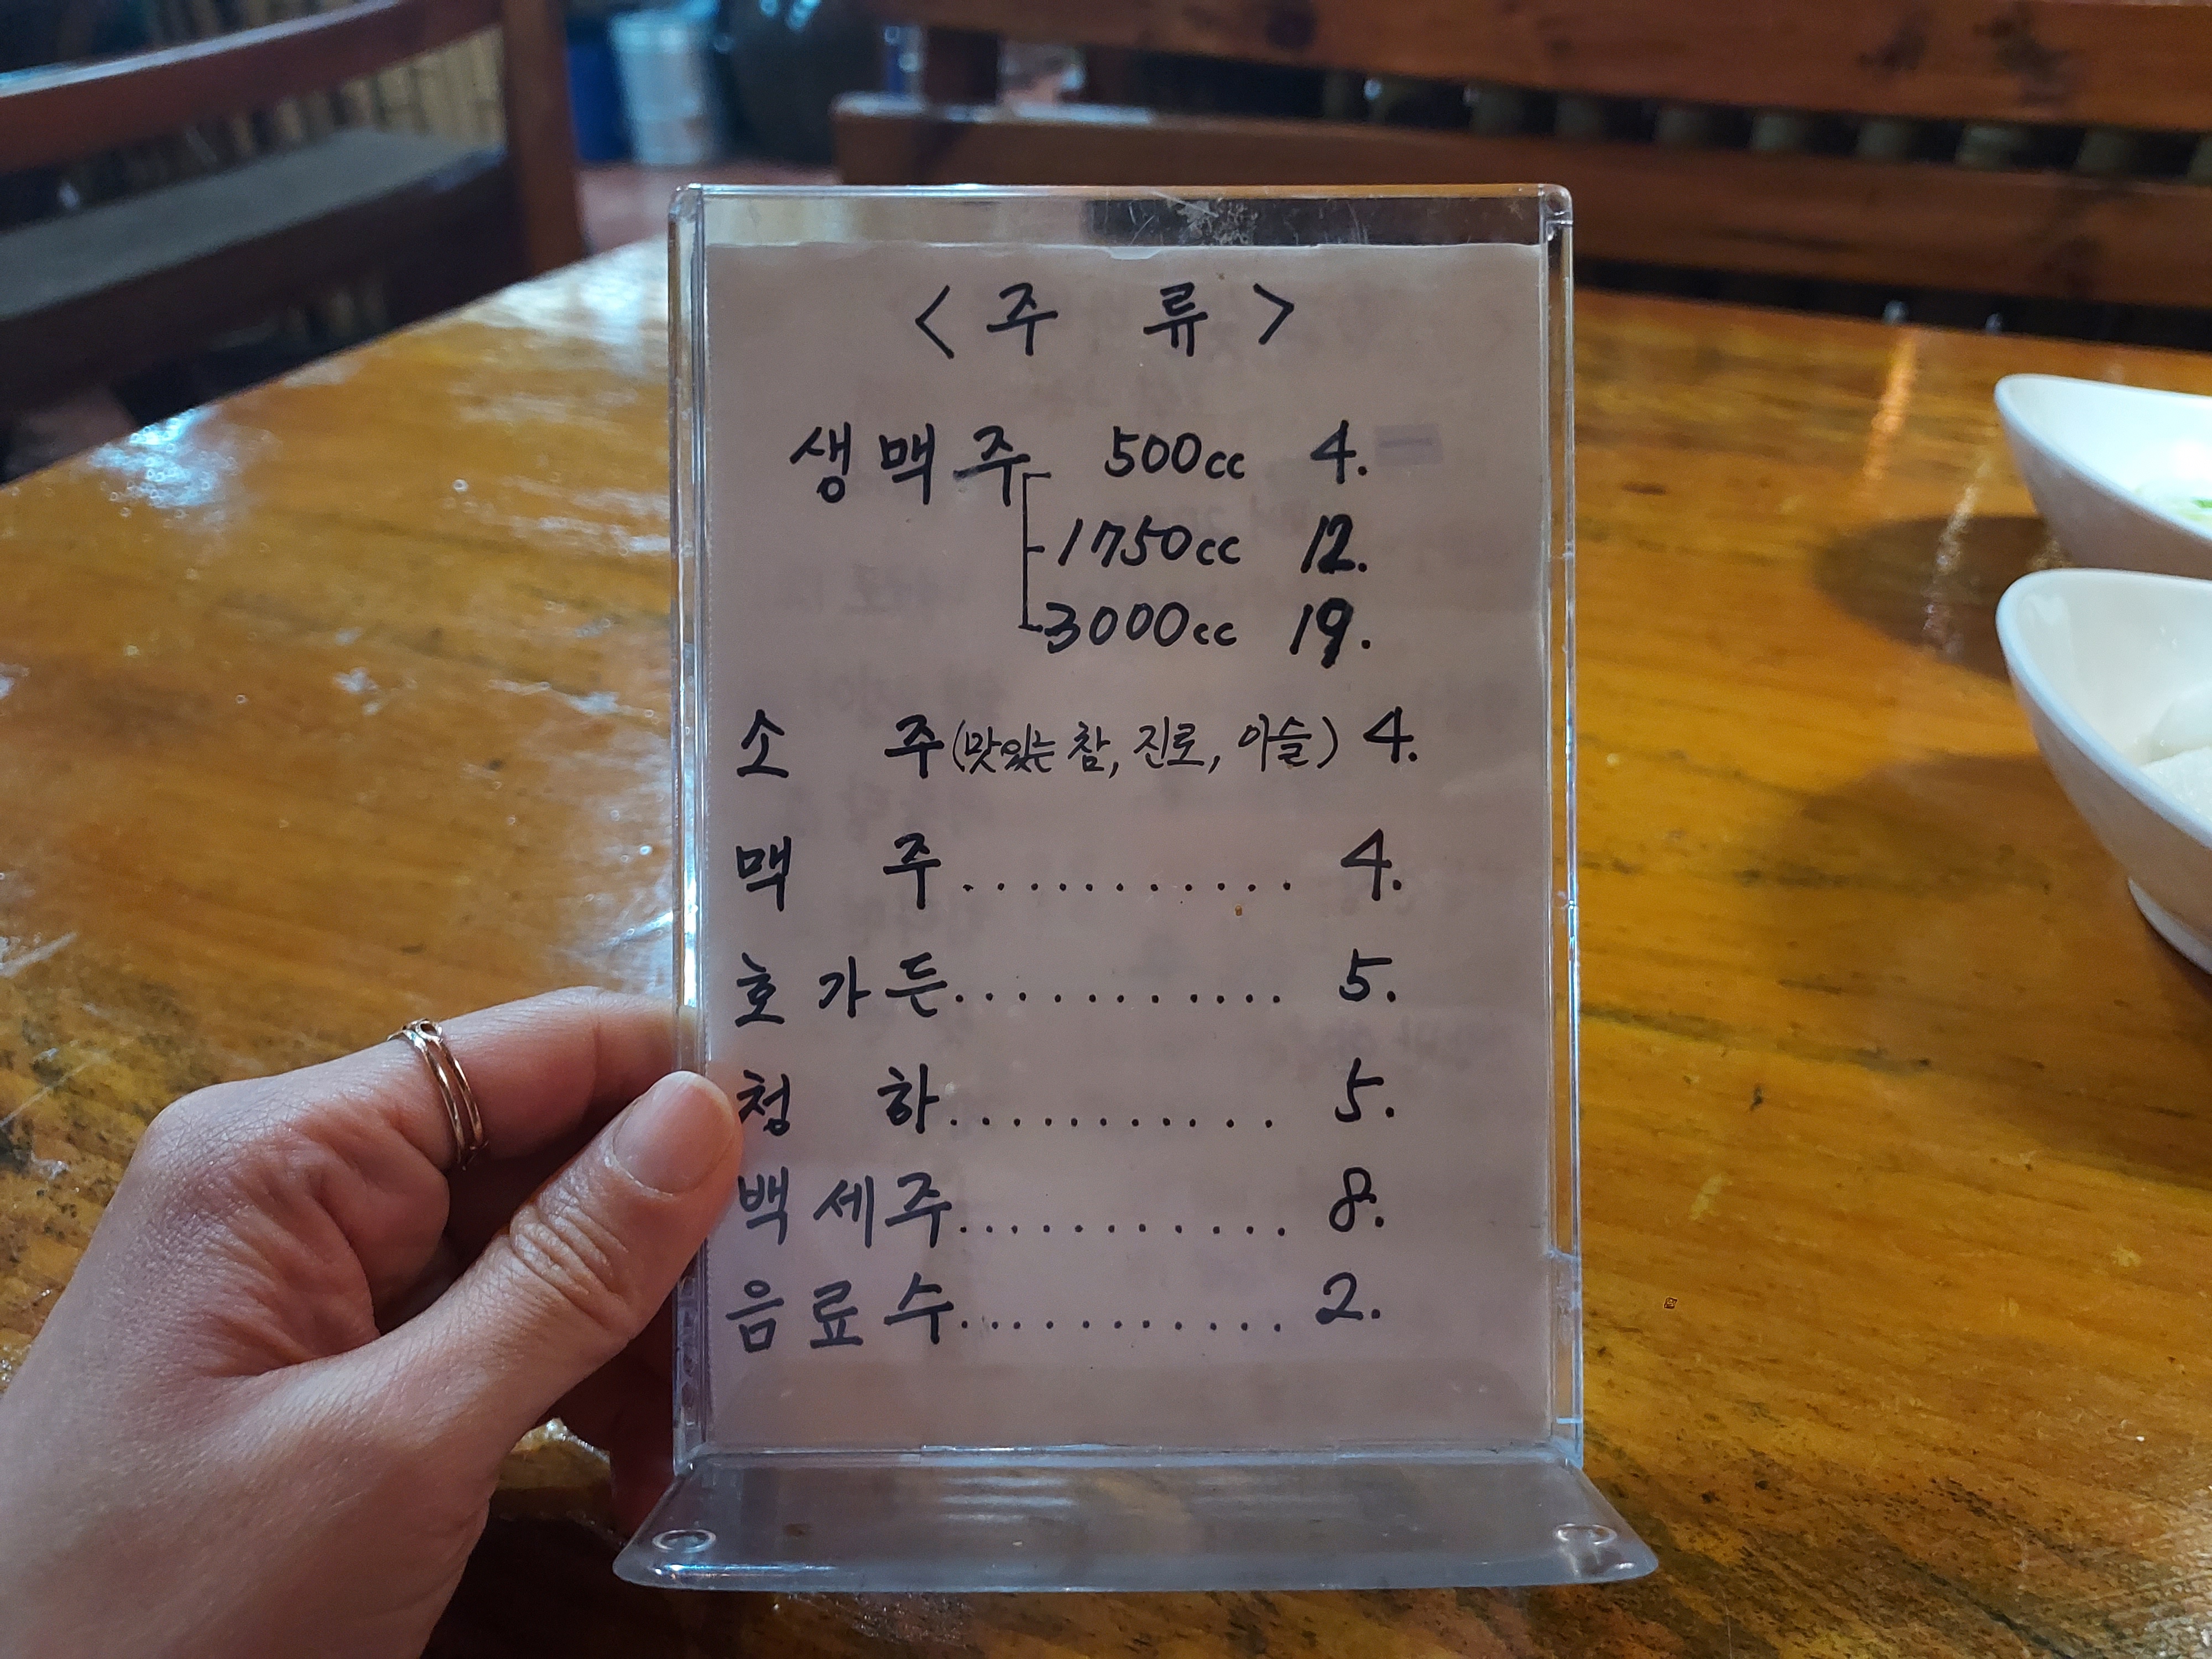 <주 류>
생맥주 500cc 4.
1750cc 12.
3000cc 19.
소 주(맛있는 참, 진로, 이슬) 4.
맥 주............ 4.
호가든............ 5.
청 하............ 5.
백세주............ 8.
음료수............ 2.